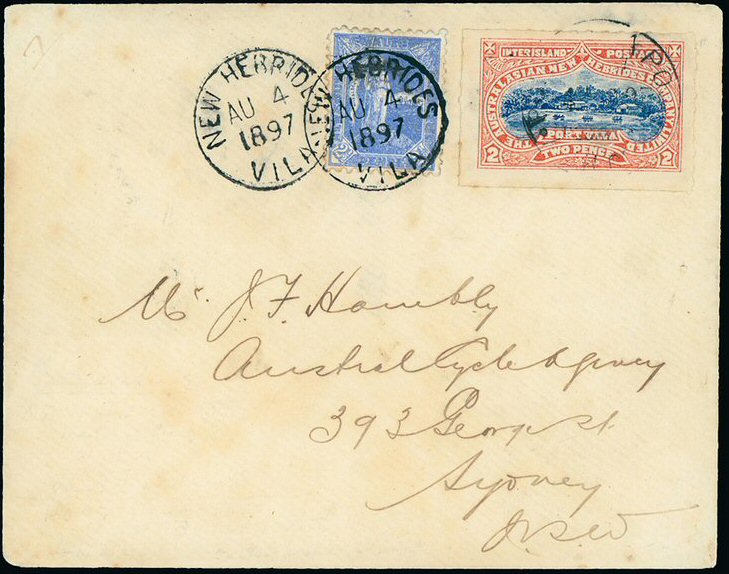 NEW HEBRIDES
AU 4
1897
VILA
NEW HEBRIDES
AU 4
1897
VILA
INTERISLAND POST
THE AUSTRALASIAN NEW HEBRIDES COMPANY LIMITED
PORT VILA
2 TWO PENCE 2
Mr. J. F. Hambly
Austral Cycle Agency
393 George St
Sydney
N.S.W